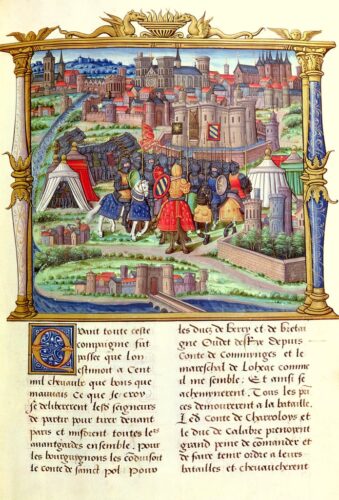 Quant toute ceste
compaignie fut
passee que lon
estimoit a Cent
mil chevaulx que bons que
mauvais Ce que Je croy
se delibererent lesd seigneurs
de partir pour tirer devant
paris et misrent toutes les
avantgardes ensemble, pour
les bourguignons les conduisoit
le conte de sainct pol Pour
les ducz de berry et de bretai
gne Oudet Depuis
Conte de Comminges et le
mareschal de Loheac comme
il me semble; Et ainsi se
acheminerent. Tous les prin
ces demourerent a la bataille.
Les Conte de Charroloys et
le duc de Calabre prenoient
grand peine de commander et
de faire tenir ordre a leurs
batailles et chevaucherent